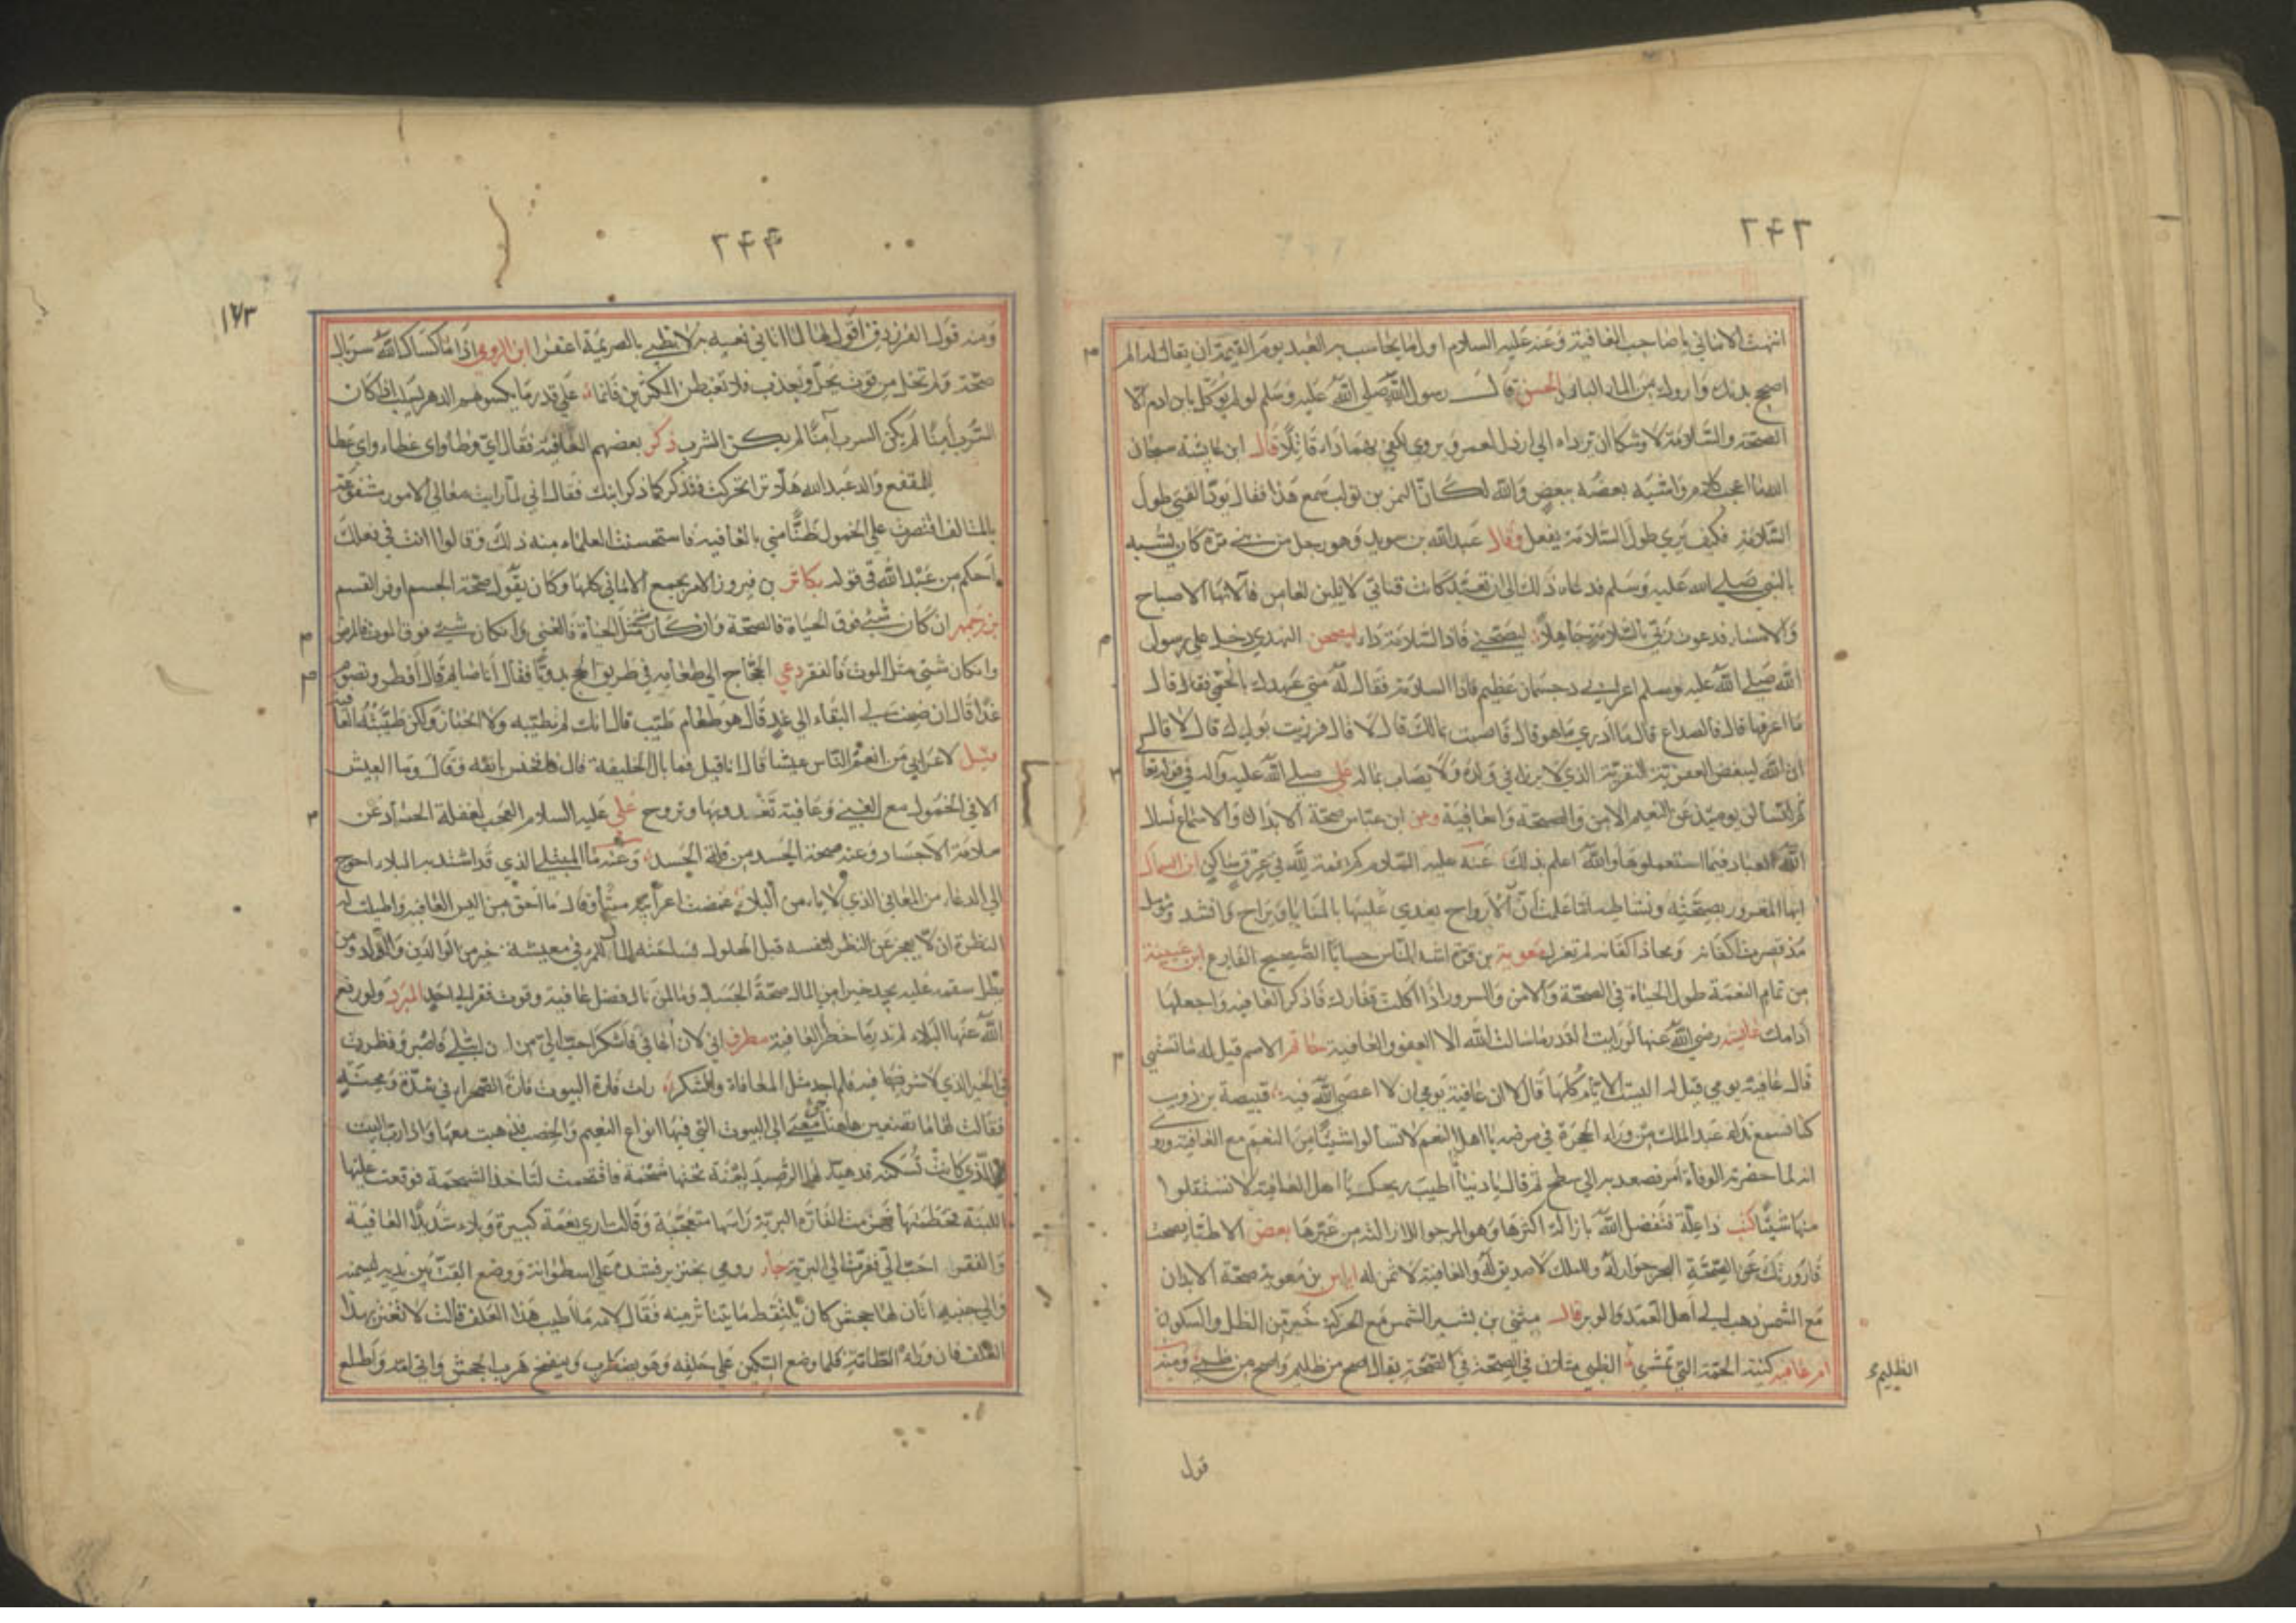 ٢٤٣
انتهت الاماني يا صاحب العافية وعنه عليه السلام اول ما يحاسب به العبد يوم القيمة ان يقال له الم
اصح بدنك واروك من الماء البارد الحسن قال رسول الله صلى الله عليه وسلم لو لم يوكل بابن ادم الا
الصحة والسلامة لاوشكا ان يرداه الى ارذل العمر ويروى لكفى بهما داء قاتلا قال ابن عايشة سبحان
الله ما اعجب كلامهم واشبه بعضه ببعض والله لكان النمر بن تولب سمع هذا فقال يود الفتى طول
السلامة فكيف يرى طول السلامة يفعل وقال عبد الله بن سويد وهو رجل من بني مرة كان يشبه
بالنبي صلى الله عليه وسلم فدعاه ذلك الى ان تعبد كانت قناتي لا تلين لغامز فالانها الاصباح
والامساء ودعوت ربي بالسلامة جاهدا ليصحني فاذا السلامة داء النهدي دخل على رسول
الله صلى الله عليه وسلم اعرابي ذو جسمان عظيم فقال له متى عهدك بالحمى فقال قال
ما اعرفها قال فالصداع قال ما ادري ما هو قال فاصبت بمالك قال لا قال فرزيت بولدك قال لا قال
ان الله ليبغض العفرية النفرية الذي لا يرزا في ولده ولا يصاب بماله علي صلى الله عليه وآله في قوله تعالى
ثم لتسألن يومئذ عن النعيم الامن والصحة والعافية وعن ابن عباس صحة الابدان والاسماع نسال
الله العباد فيما استعملوها والله اعلم بذلك عنه عليه السلام كم نعمة لله في عرق ساكن ابن السماك
ايها المغرور بصحته ونشاطه اما علمت ان الارواح يغدى عليها بالمنايا ويراح
معوية بن قرة اشد الناس حسابا الصحيح الفارغ ابن عيينة
من تمام النعمة طول الحياة في الصحة والامن والسرور اذا اكلت قفارك فاذكر العافية واجعلها
ادامك عايشة رضي الله عنها لو رايت ليلة القدر ما سالت الله الا العفو والعافية حاتم الاصم قيل له ما تشتهي
قال عافية يومي قيل له اليست الايام كلها قال لا ان عافية يومي ان لا اعصى الله فيه قبيصة بن ذويب
كنا نسمع نداء عبد الملك من وراء الحجرة في مرضه يا اهل النعم لا تسالوا شيئا من النعم مع العافية وروي
انه لما حضرته الوفاة امر فصعد به الى سطح ثم قال يا دنيا ما اطيب ريحك يا اهل العافية لا تستقلوا
منها شيئا كتب ذا علة فتفضل الله بازالة اكثرها وهو المرجو لازالة من غيرها بعض الاطبا
البحر جوار له والملك لا صديق له والعافية لا ثمن له اياس بن معوية صحة الابدان
مع الشمس ذهب الى اهل العمد والوبر قال مثنى بن بشير الشمس مع الحركة خير من الظل والسكون
ام عافية كنية الحمة التي تشري الظبي مثل في الصحة يقال اصح من ظليم واصح من ظبي ومنه
الظليم
قول
٢٤٤
١٧٣
ومنه قول الفرزدق اقول لها لما اتاني نعيه به لا بظبي بالصريمة اعفرا ابن الرومي اذا ما كساك الله سربال
صحة ولم تخل من قوت يحل ويعذب فلا تغبطن المكثرين فانما على قدر ما يكسوهم الدهر يسلب اذا كان
السرب امنا لم يكن السرب آمنا لم يكن الشرب ذكر بعضهم العافية فقال اي وطاء واي غطاء
للمقفع والد عبد الله هلا فذكر كما ذكر ابنك فقال اني لما رايت معالي الامور مشفوعة
بالمتالف اقتصرت على الخمول ظنا مني بالعافية فاستحسنت العلماء منه ذلك وقالوا انت في فعلك
احكم من عبد الله في قوله بن فيروز الامر يجمع الاماني كلها وكان يقول صحة الجسم اوفر القسم
بزرجمهر ان كان شيء فوق الحياة فالصحة وان كان مثل الحياة فالغنى وان كان شيء فوق الموت فالمرض
وان كان شيء مثل الموت فالفقر دعي الحجاج الى طعامه في طريق الحج بدويا فقال انا صايم قال افطر وتصوم
غدا قال ان ضمنت لي البقاء الى غد قال هو طعام طيب قال انك لم تطيبه ولا الخباز ولكن طيبته العافية
قيل لاعرابي من انعم الناس عيشا قال انا قيل فما بال الخليفة قال وما العيش
الا في الخمول مع الغنى وعافية تغدو بها وتروح علي عليه السلام العجب لغفلة الحساد عن
سلامة الاجساد وعنه صحة الجسد من قلة الحسد وعنه ما المبتلى الذي قد اشتد به البلاء باحوج
الى الدعاء من المعافى الذي لا يامن البلاء غمضت اعرابية ميتا وقال ما احق من البس العافية واطيلت له
النظرة ان لا يعجز عن النظر لنفسه قبل الحلول بساحته المرء في معيشة خير من الوالدين والولد ومن
يطل سقمه عليه يجد خيرا من المال صحة الجسد وما لمن نال فضل عافية وقوت فقر الى احد المبرد ولو رفع
الله عنا البلاء لم ندر ما خطر العافية مطرف اني لان اعافى فاشكر احب الي من ان ابتلى فاصبر ونظرت
في الخير الذي لا شر فيه فلم اجد مثل المعافاة والشكر رات فارة البيوت فارة الصحراء في شدة ومحنة
فقالت لها ما تصنعين هاهنا معي الى البيوت التي فيها انواع النعيم والخصب فذهبت معها واذا رب البيت
الذي كانت تسكنه قد هيا لها الرصد لبنة تحتها شحمة فاقتحمت لتاخذ الشحمة فوقعت عليها
اللبنة فحطمتها الفارة البرية راسها متعجبة وقالت ارى نعمة كثيرة وبلاء شديدا العافية
والفقر احب الي ففرت الى البرية جار رومي خنزير فشده على اسطوانة ووضع القت بين يديه ليسمنه
والى جنبه اتان لها جحش كان يلتقط ما يتناثر منه فقال لامه ما اطيب هذا العلف قالت لا تغتر بهذا
العلف فان وراءه الطامة فلما وضع السكين على حلقه وهو يضطرب وينفخ هرب الجحش واتى امه واطلع